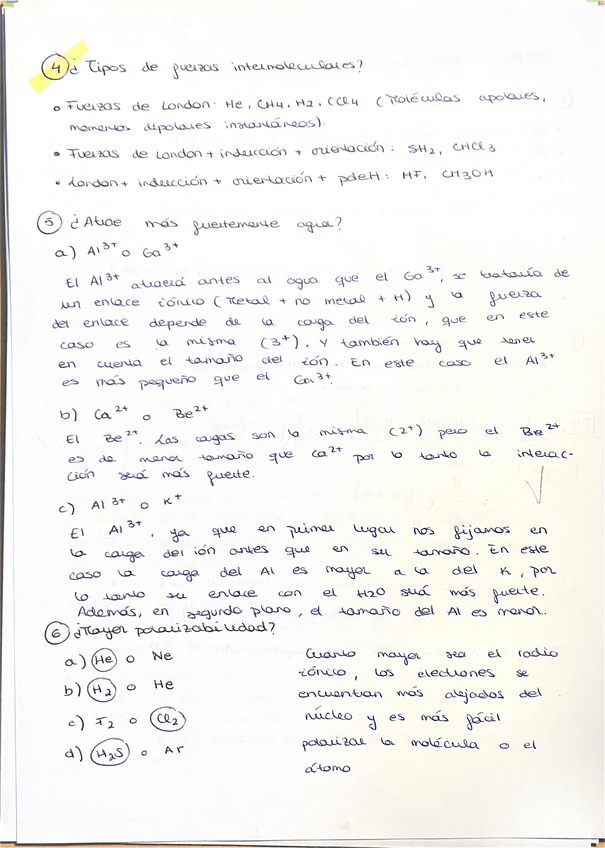 ④ ¿Tipos de fuerzas intermoleculares?
• Fuerzas de London: He, CH4, H2, CCl4 (Moléculas apolares,
momentos dipolares instantáneos).
• Fuerzas de London + inducción + orientación: SH2, CHCl3
• London + inducción + orientación + pdeH: HF, CH3OH
⑤ ¿Atrae más fuertemente agua?
a) Al³⁺ o Ga³⁺
El Al³⁺ atraerá antes al agua que el Ga³⁺, se trataría de
un enlace iónico (Metal + no metal + H) y la fuerza
del enlace depende de la carga del ión, que en este
caso es la misma (3⁺). Y también hay que tener
en cuenta el tamaño del ión. En este caso el Al³⁺
es más pequeño que el Ga³⁺.
b) Ca²⁺ o Be²⁺
El Be²⁺. Las cargas son la misma (2⁺) pero el Be²⁺
es de menor tamaño que Ca²⁺ por lo tanto la interac-
ción será más fuerte.
c) Al³⁺ o K⁺
El Al³⁺, ya que en primer lugar nos fijamos en
la carga del ión antes que en su tamaño. En este
caso la carga del Al es mayor a la del K, por
lo tanto su enlace con el H2O será más fuerte.
Además, en segundo plano, el tamaño del Al es menor.
⑥ ¿Mayor polarizabilidad?
a) He o Ne
b) H2 o He
c) F2 o Cl2
d) H2S o Ar
Cuanto mayor sea el radio
iónico, los electrones se
encuentran más alejados del
núcleo y es más fácil
polarizar la molécula o el
átomo